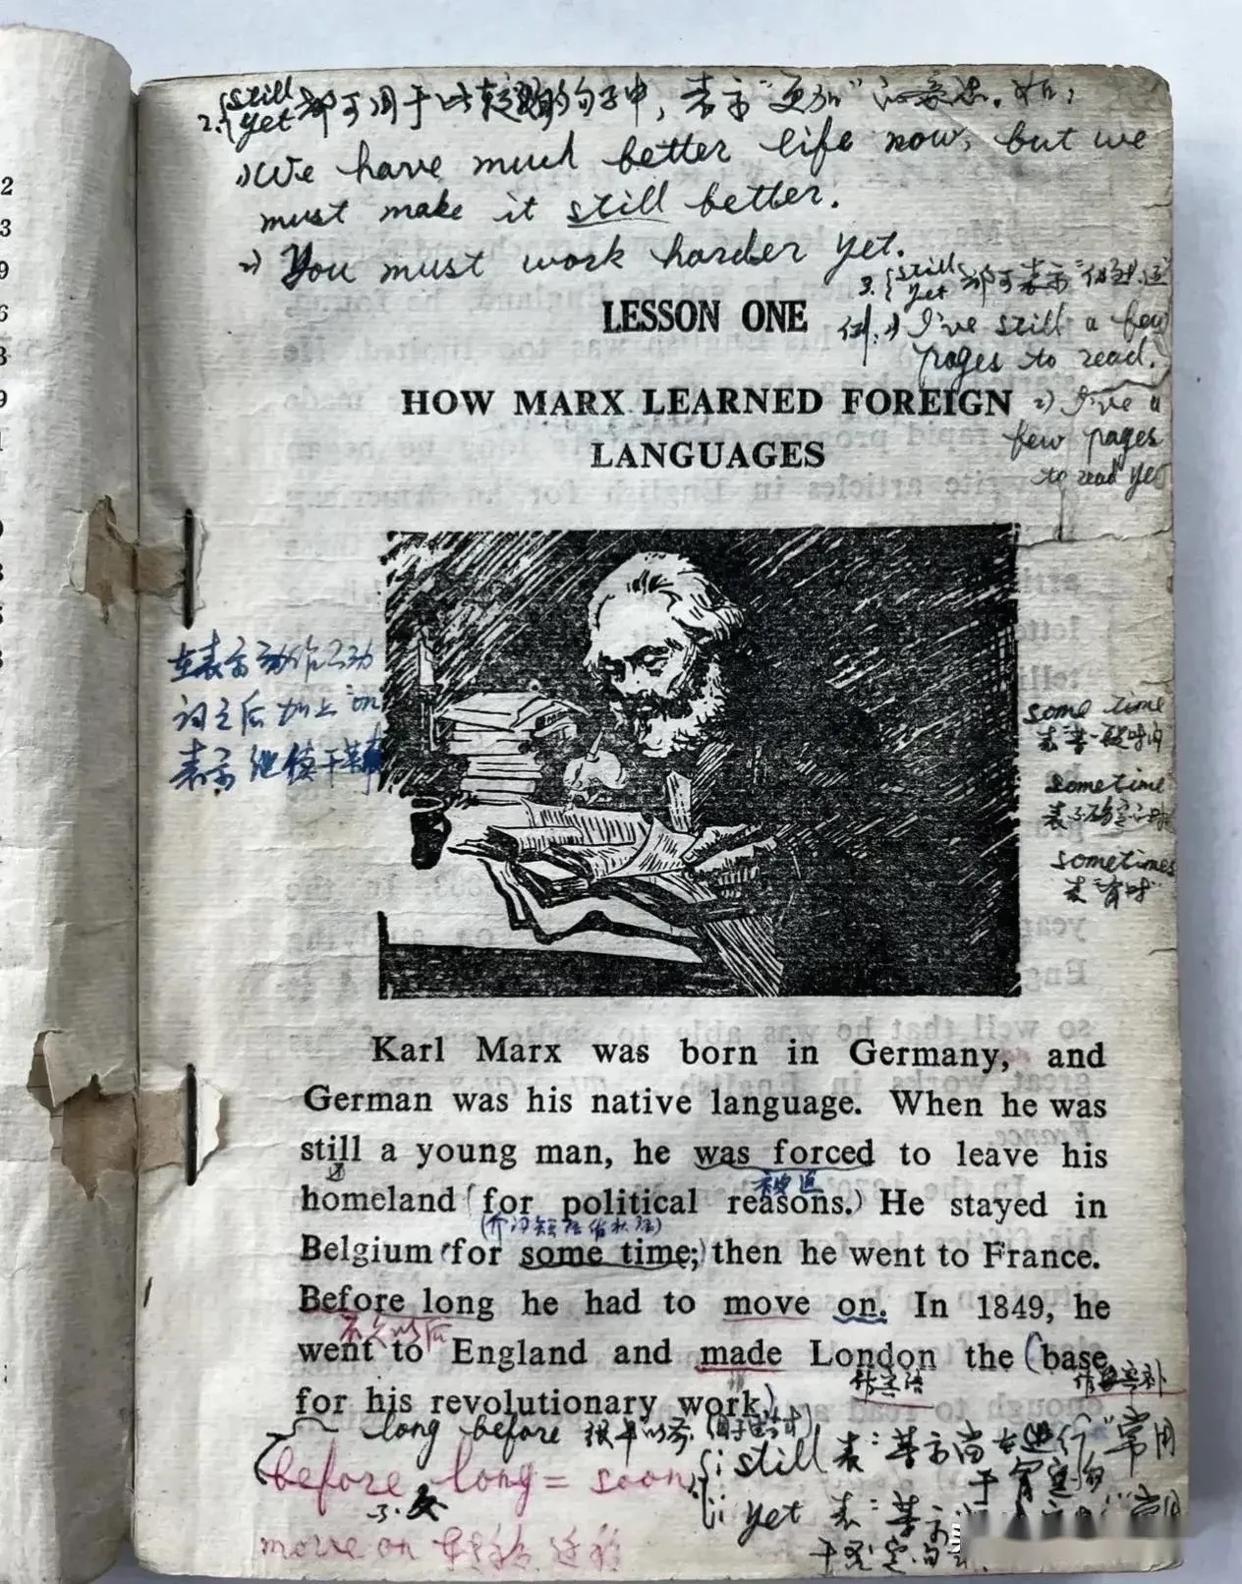 2. still
yet 都可用于比较级的句子中，表示“更加”的意思。如：
1) We have much better life now, but we
must make it still better.
2) You must work harder yet.
3. still
yet 都可表示
例：1) I've still a few
pages to read.
2) I've a
few pages
to read yet
LESSON ONE
HOW MARX LEARNED FOREIGN
LANGUAGES
在表示动作的动
词之后加上"on"
表示继续干某事
some time
表"某一段时间
sometime
表不确定的时
sometimes
表"有时"
Karl Marx was born in Germany, and
German was his native language. When he was
still a young man, he was forced to leave his
被迫
homeland (for political reasons.) He stayed in
(介词短语作状语)
Belgium (for some time;) then he went to France.
Before long he had to move on. In 1849, he
不久以后
went to England and made London the (base
宾语
宾补
for his revolutionary work)
long before 很早以前
before long = soon
不久
move on
i still 表：某事尚在进行"常用
于肯定句
ii yet 表：某事
于否定句
2
3
9
6
3
9